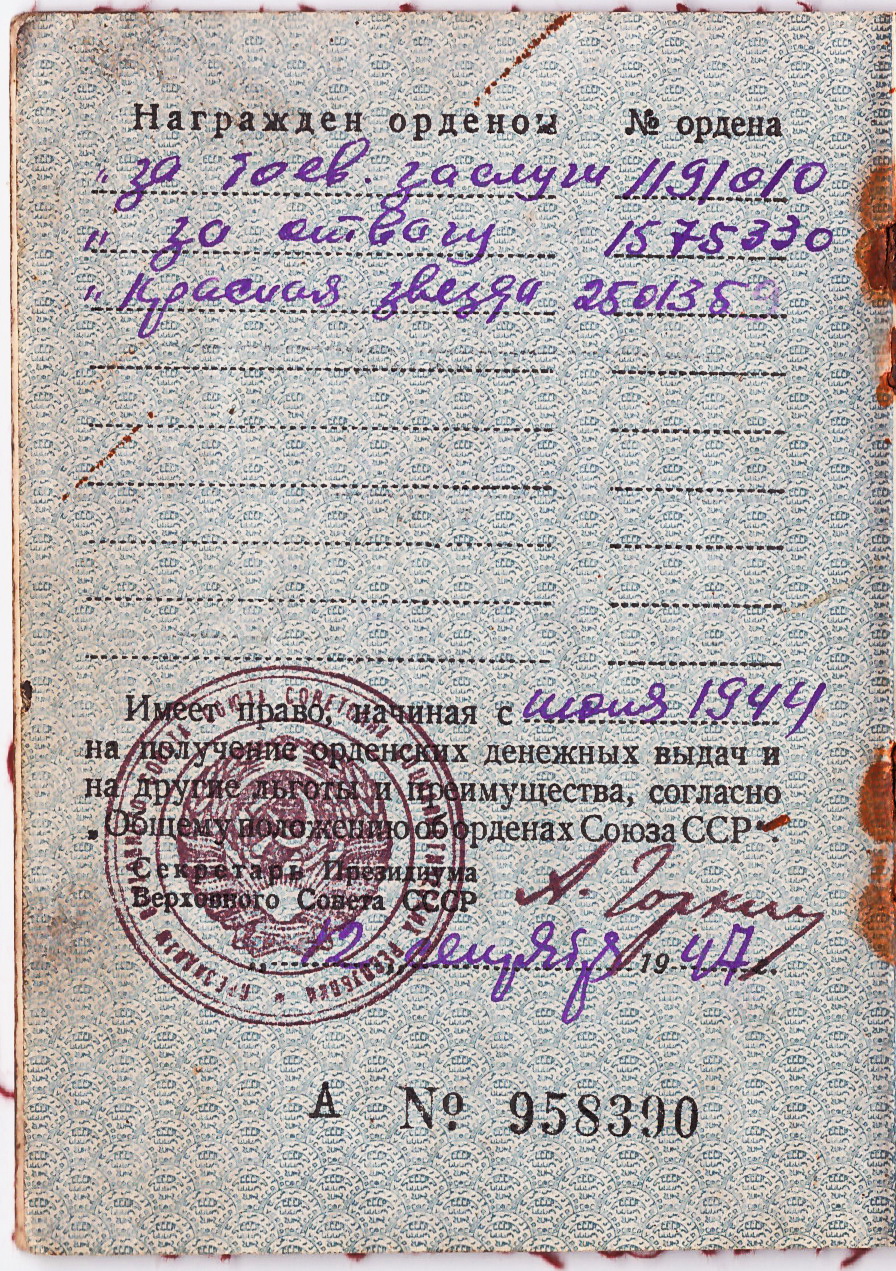 Награжден орденом № ордена
„за боев. заслуги 1191010
„за отвагу 1575330
„Красная звезда 2501359
Имеет право, начиная с июня 1944
на получение орденских денежных выдач и
на другие льготы и преимущества, согласно
„Общему положению об орденах Союза ССР“.
Секретарь Президиума
Верховного Совета СССР А. Горкин
„12 „ сентября 1947 г.
А № 958390